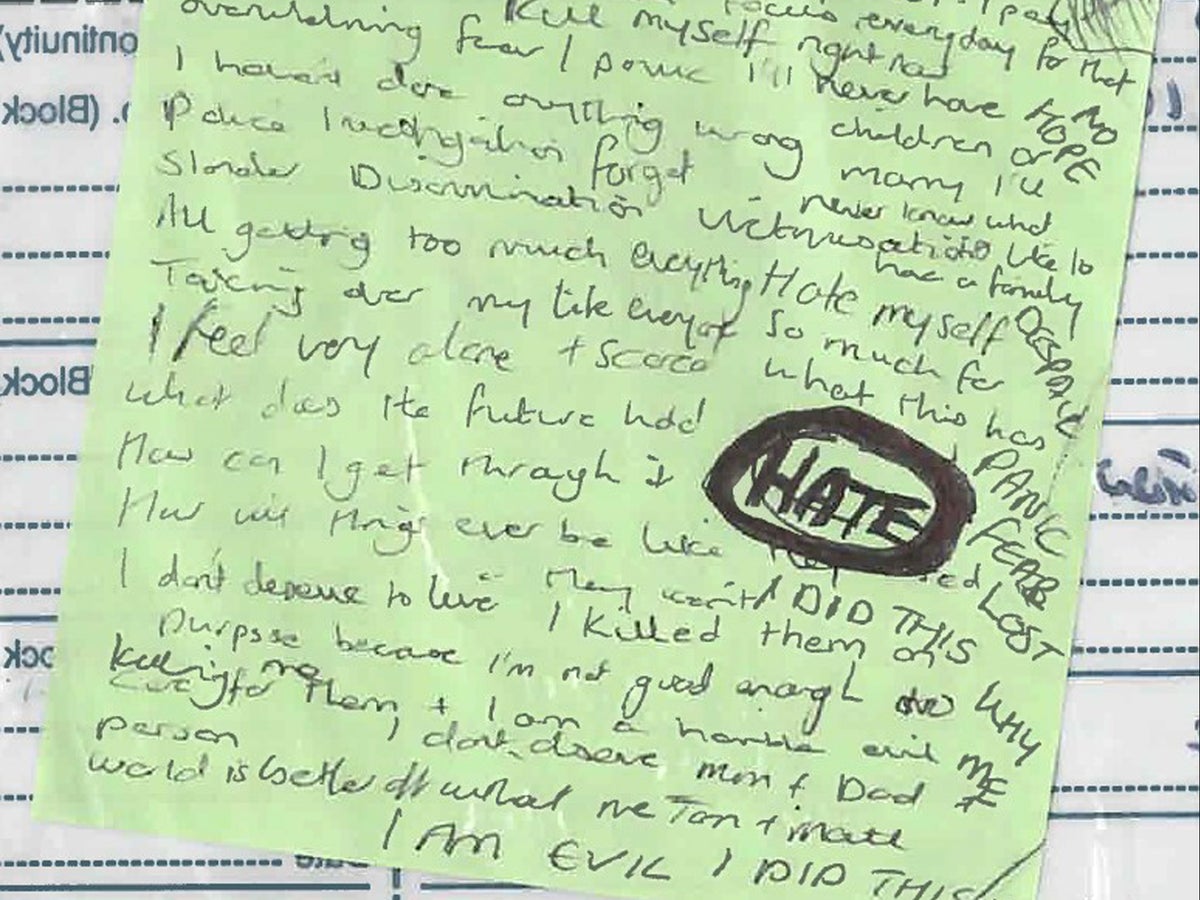 overwhelming fear / panic
Kill myself right now
focus everyday for that
I'll never have
NO
HOPE
children or
marry I'll
never know what
like to
have a family
I haven't done anything wrong
Police Investigation forget
Slander Discrimination Victimisation
All getting too much everything
Taking over my life everyone
Hate myself
so much for
what this has
DESPAIR
I feel very alone + scared
what does the future hold
How can I get through it
How will things ever be like
HATE
PANIC
FEAR
LOST
I don't deserve to live
They want
I DID THIS
WHY
ME
I killed them on
purpose because I'm not good enough
killing me
care for them + I am a horrible evil
person
I don't deserve Mum + Dad
world is better off without me
I AM EVIL I DID THIS
ontinuity)
o. (Block
Block
ock
Date